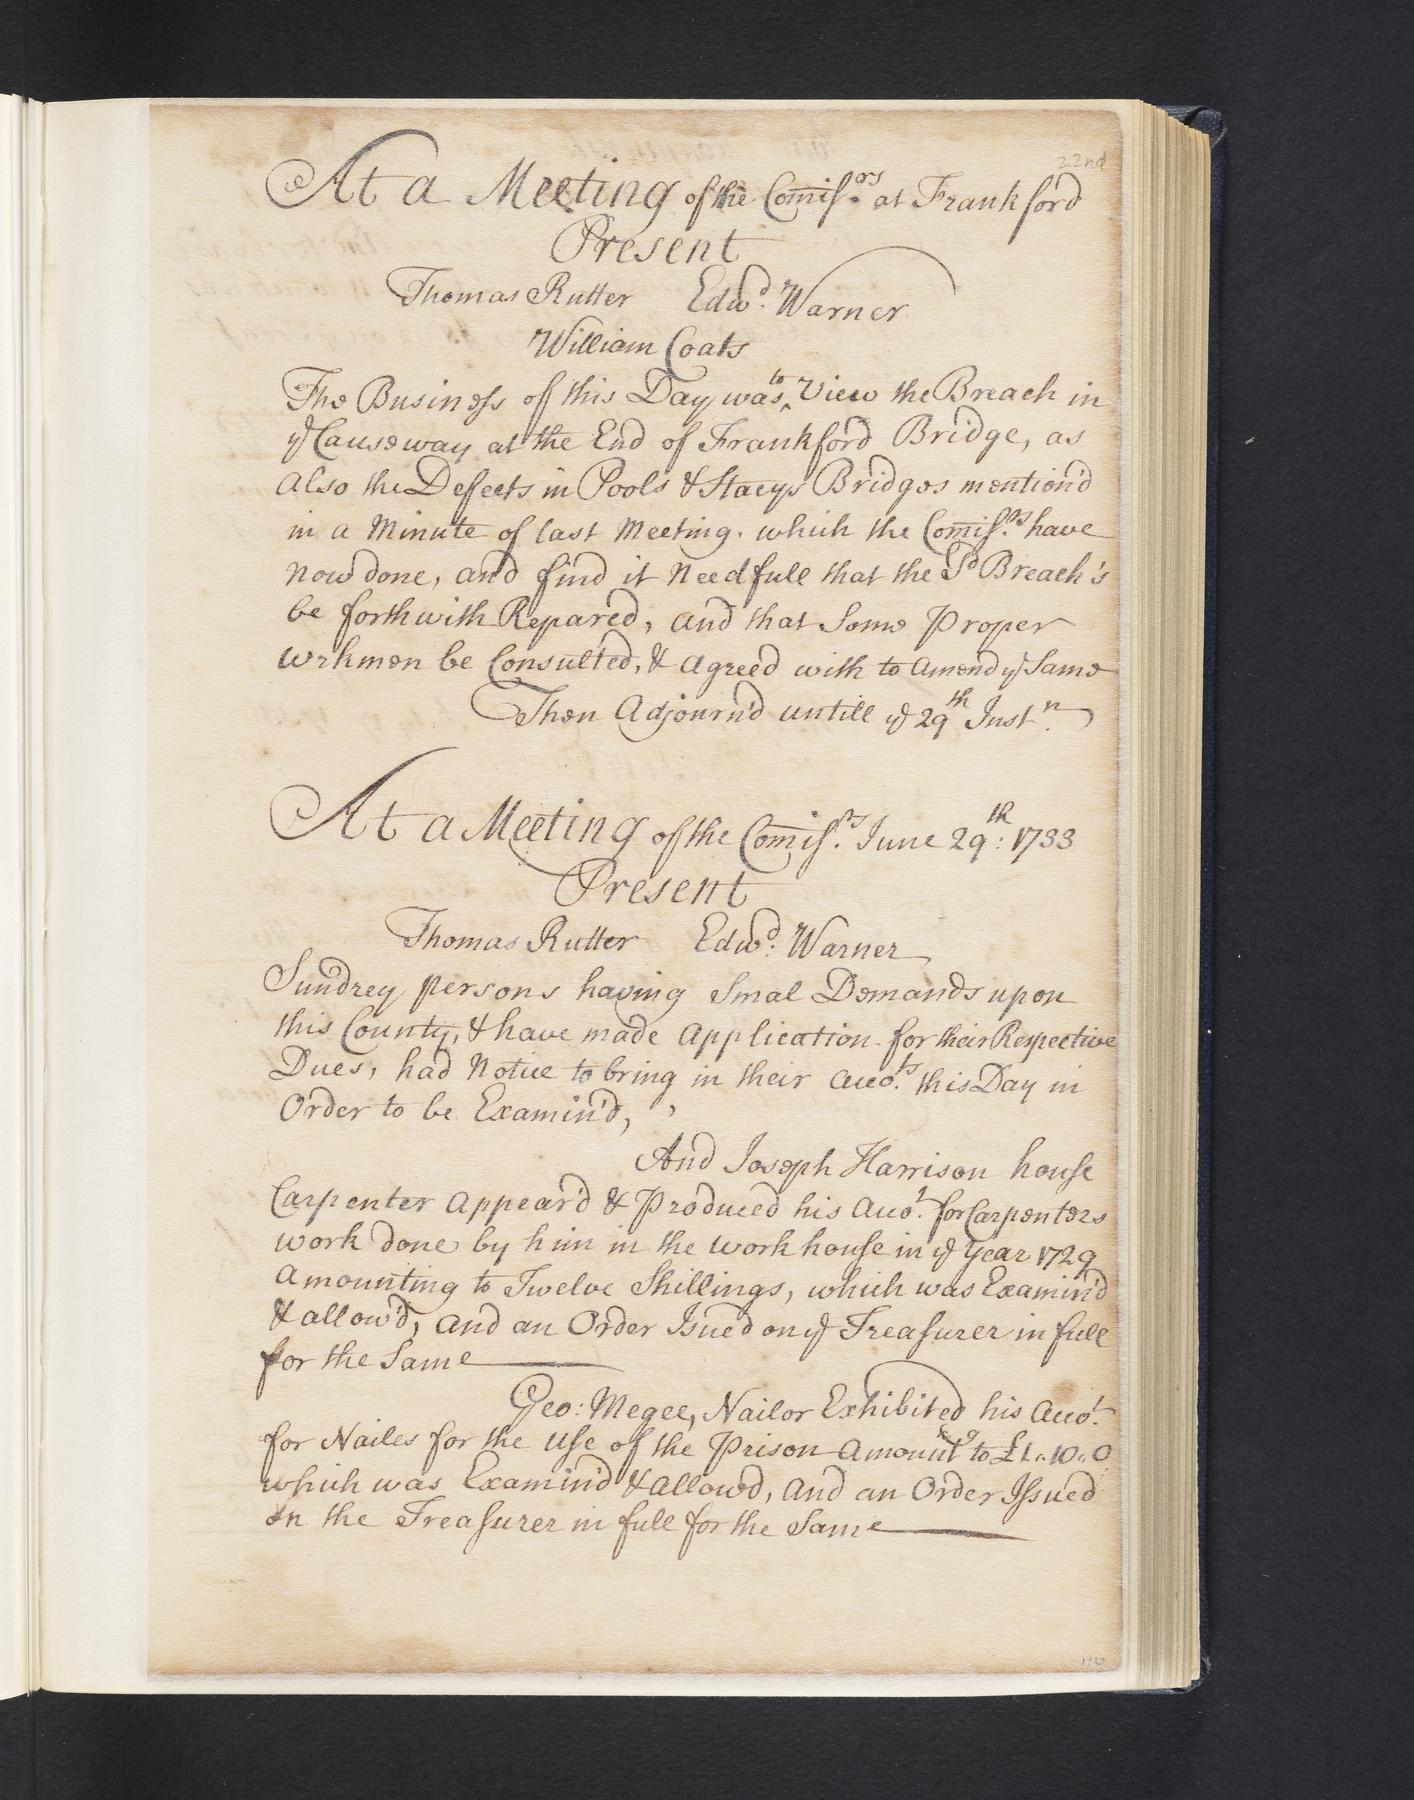 22nd
At a Meeting of the Comiss.ors at Frankford
Present
Thomas Rutter Edwd. Warner
William Coats
The Business of this Day was to View the Breach in
ye Causeway at the End of Frankford Bridge, as
also the Defects in Pools & Staeys Bridges mention'd
in a Minute of last Meeting. which the Comiss.rs have
now done, and find it Needfull that the Sd Breach's
be forthwith Repared, and that Some Proper
Wrkmen be Consulted, & agreed with to amend ye Same
Then Adjourn'd untill ye 29th Instn.
At a Meeting of the Comiss.rs June 29th: 1733
Present
Thomas Rutter Edwd. Warner
Sundrey persons having Smal Demands upon
this County, & have made application for their Respective
Dues, had Notice to bring in their Acco.ts this Day in
Order to be Examin'd,
And Joseph Harrison house
Carpenter appear'd & Produced his Acco.t for Carpenters
work done by him in the work house in ye Year 1729
amounting to Twelve Shillings, which was Examin'd
& allow'd, and an Order Isued on ye Treasurer in full
for the Same
Geo: Megee, Nailor Exhibited his Acco.t
for Nailes for the Use of the Prison amount.g to £1..10..0
which was Examin'd & allowd, and an Order Issued
on the Treasurer in full for the Same